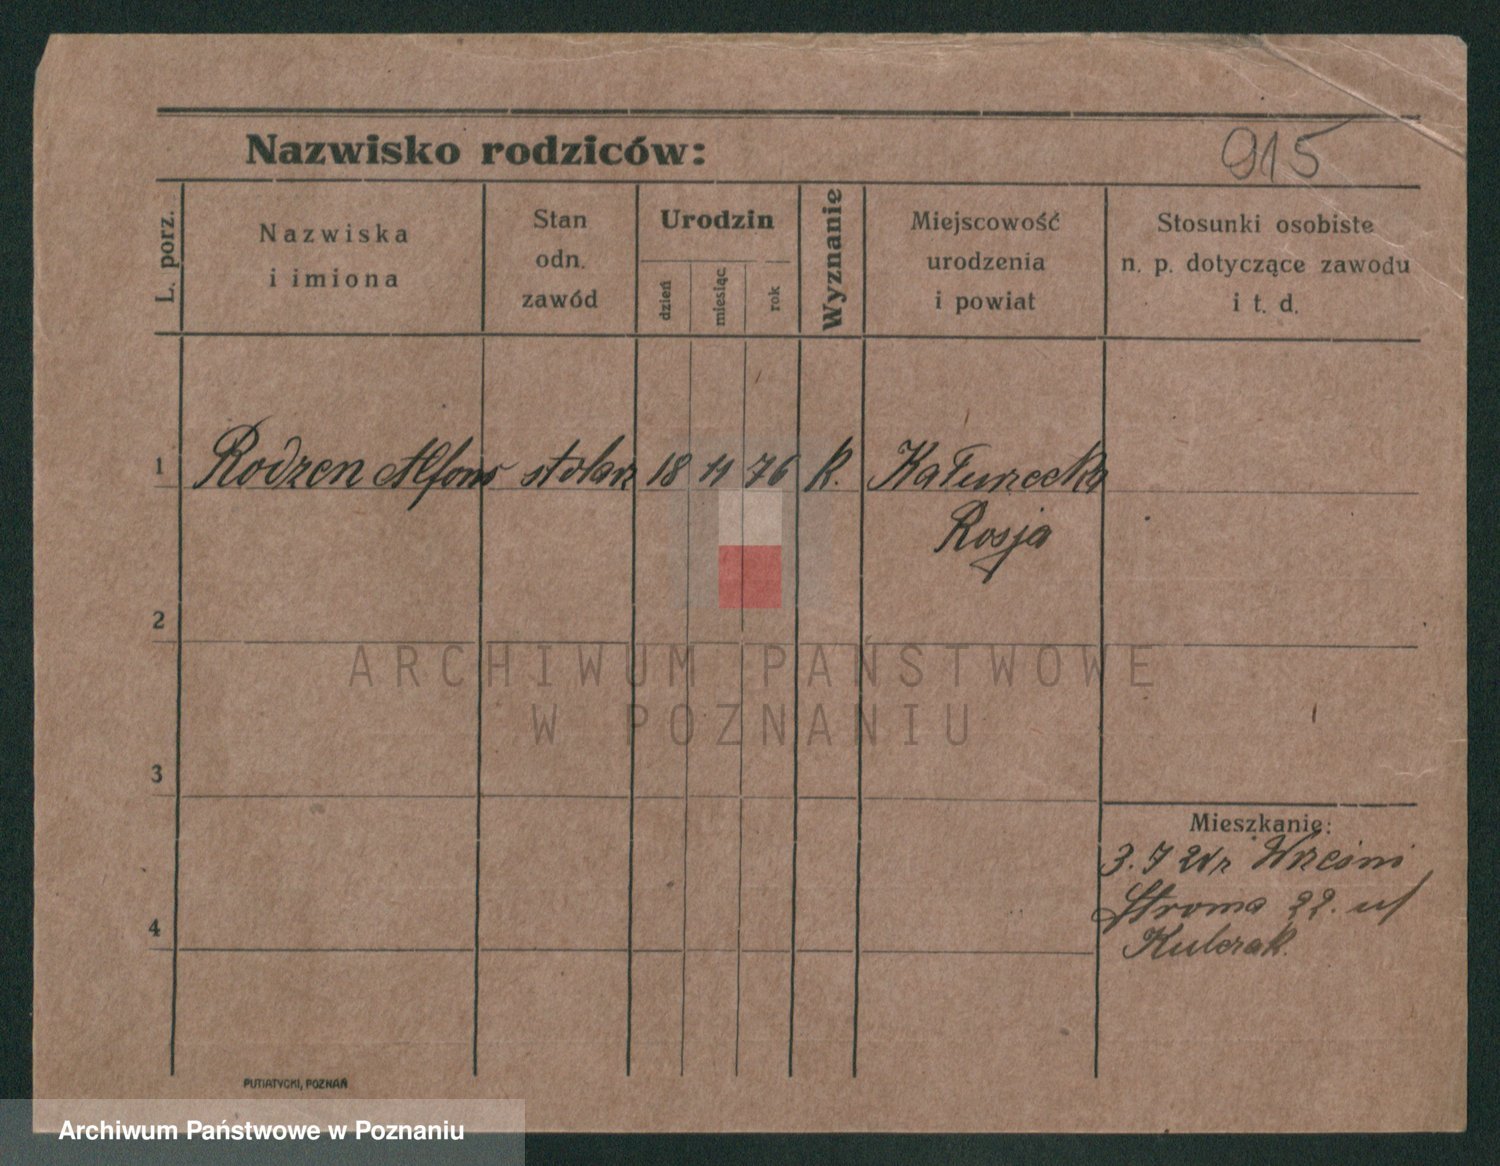 Nazwisko rodziców:
915
L. porz.
Nazwiska
i imiona
Stan
odn.
zawód
Urodzin
dzień
miesiąc
rok
Wyznanie
Miejscowość
urodzenia
i powiat
Stosunki osobiste
n. p. dotyczące zawodu
i t. d.
1 Rodzen Alfons stolarz 18 11 76 k.
Rosja
2
ARCHIWUM PAŃSTWOWE
W POZNANIU
3
Mieszkanie:
3. 7 Wrześni
Stroma 22.
4
Kulczak
PUTIATYCKI, POZNAŃ
Archiwum Państwowe w Poznaniu